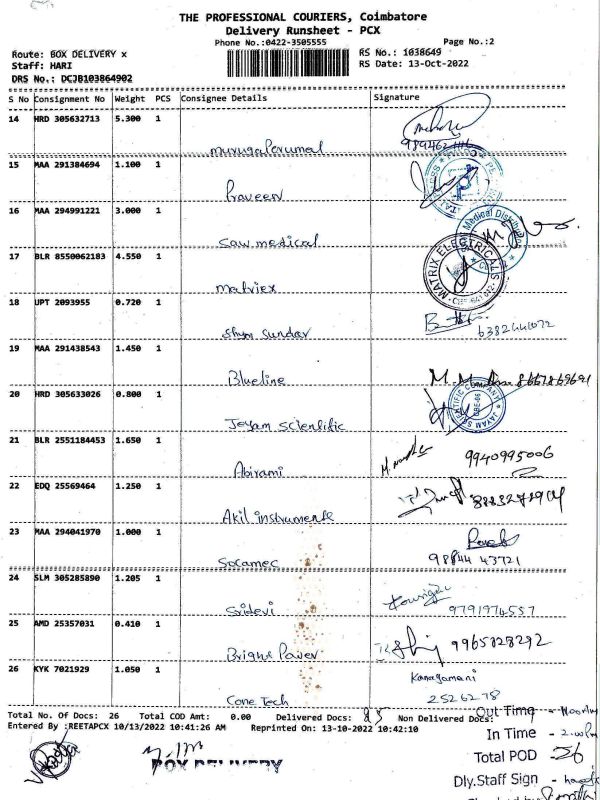 THE PROFESSIONAL COURIERS, Coimbatore
Delivery Runsheet - PCX
Phone No.:0422-3505555
Page No.:2
Route: BOX DELIVERY x
RS No.: 1038649
Staff: HARI
RS Date: 13-Oct-2022
DRS No.: DCJB103864902
S No Consignment No Weight PCS Consignee Details Signature
14 HRD 305632713 5.300 1
murugaperumal
15 MAA 291384694 1.100 1
Praveen
16 MAA 294991221 3.000 1
Saw medical
Medical Distributo
17 BLR 8550062183 4.550 1
matriex
MATRIX ELECTRICALS
18 UPT 2093955 0.720 1
Shym Sundar 6382444072
19 MAA 291438543 1.450 1
Blueline 8667869691
20 HRD 305633026 0.800 1
Jeyam Scientific
JAYAM SCIENTIFIC COMPANY
21 BLR 2551184453 1.650 1
Abirami 9940995006
22 EDQ 25569464 1.250 1
Akil instruments
23 MAA 294041970 1.000 1
Socamec 98844 43721
24 SLM 305285890 1.205 1
Sridevi 9791974557
25 AMD 25357031 0.410 1
Bright Power 9965828292
26 KYK 7021929 1.050 1
Kanagamani
Cone Tech 2526278
Total No. Of Docs: 26 Total COD Amt: 0.00 Delivered Docs: 25 Non Delivered Docs:
Entered By :REETAPCX 10/13/2022 10:41:26 AM Reprinted On: 13-10-2022 10:42:10
Out Time -
In Time -
Total POD - 26
BOX DELIVERY
Dly.Staff Sign -